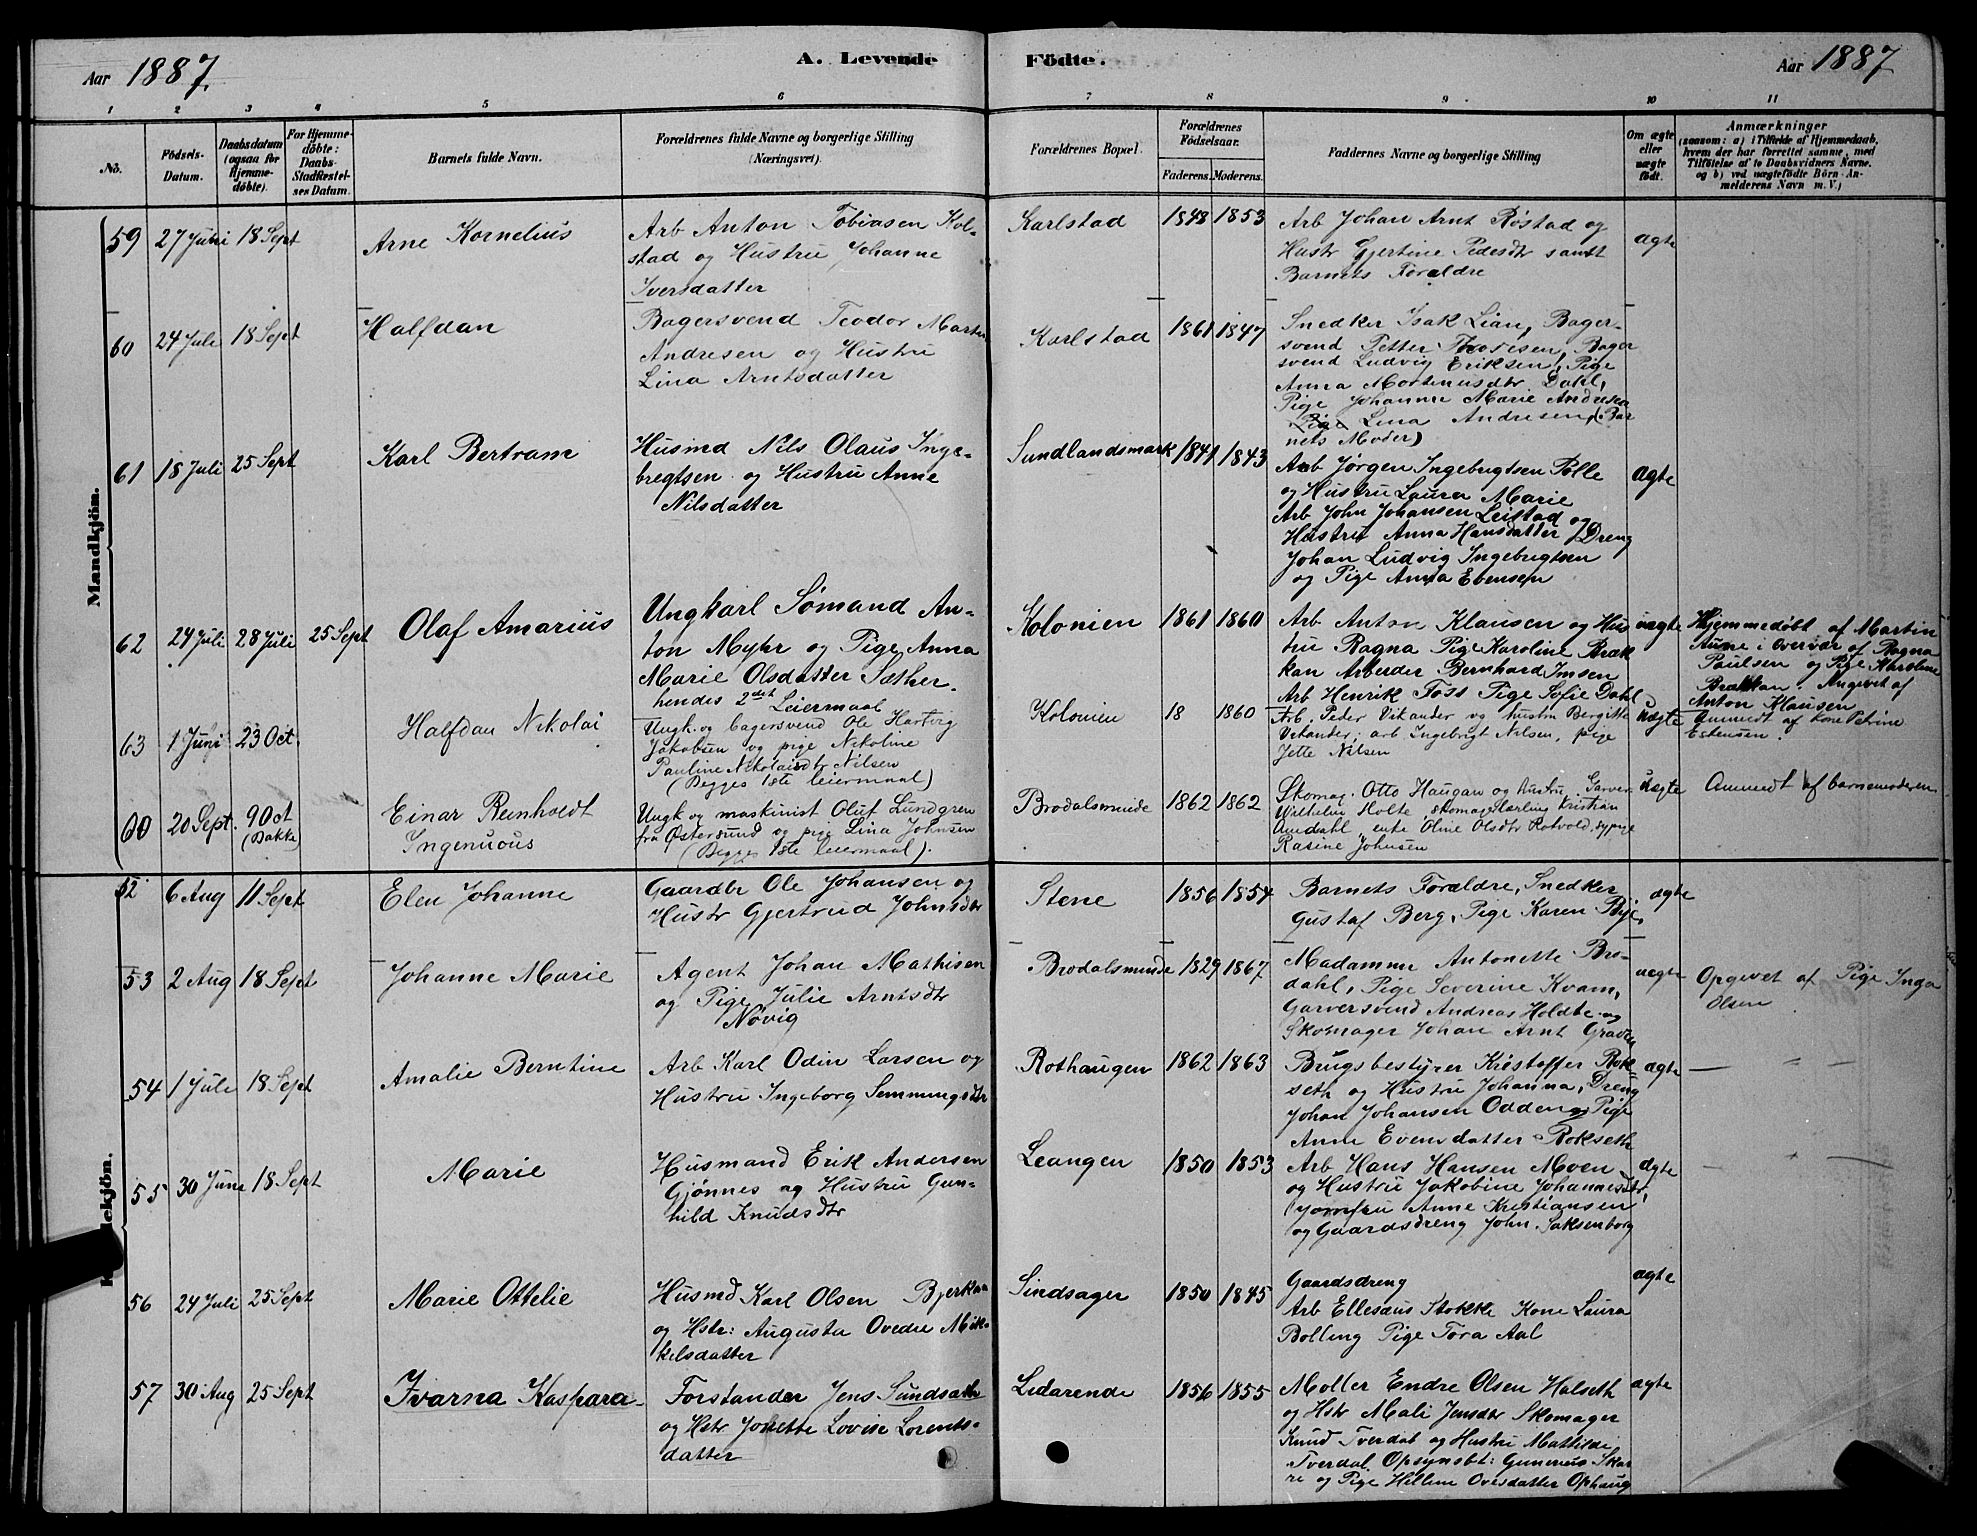 Aar 1887. A. Levende Födte. Aar 1887
1 2 3 4 5 6 7 8 9 10 11
No.
Födsels-Datum.
Daabsdatum (ogsaa for Hjemme-döbte).
For Hjemme-döbte: Daabs-Stadfæstel-ses Datum.
Barnets fulde Navn.
Forældrenes fulde Navne og borgerlige Stilling (Næringsvei).
Forældrenes Bopæl.
Forældrenes Födselsaar.
Faderens. Moderens.
Faddernes Navne og borgerlige Stilling
Om ægte eller uægte født.
Anmærkninger
(saasom: a) i Tilfælde af Hjemmedaab,
hvem der har forrettet samme, med
Tilföielse af to Daabsvidners Navne.
og b) ved uægtefödte Börn An-
melderens Navn m. V.)
Mandkjön.
59 27 Juni 18 Sept
Arne Kornelius
Arb Anton Tobiasen Kol-
stad og Hustru Johanne
Iversdatter
Karlstad 1848 1853
Arb Johan Arnt Røstad og
Hustr Gjertine Pedesdtr samt
Barnets Forældre
ægte
60 24 Juli 18 Sept
Halfdan
Bagersvend Teodor Martin
Andresen og Hustru
Lina Arntsdatter
Karlstad 1861 1847
Snedker Isak Lian, Bager-
svend Petter Thoresen, Bager
svend Ludvig Eriksen, Pige
Anna Mortenusdtr Dahl,
Pige Johanne Marie Andresen
Pige Lina Andresen, (Bar
nets Moder)
61 18 Juli 25 Sept
Karl Bertram
Husmd Nils Olaus Inge-
bregtsen og Hustru Anne
Nilsdatter
Sundlandsmark 1841 1843
Arb Jørgen Ingebrigtsen Tølle
og Hustru Laura Marie
Arb John Johansen Leistad og
Hustru Anna Hansdatter, Dreng
Johan Ludvig Ingebrigtsen
og Pige Anna Ebensen
ægte
62 24 Juli 28 Juli 25 Sept
Olaf Amarius
Ungkarl Sømand An-
ton Myhr og Pige Anna
Marie Olsdatter Sæther.
hendes 2det Leiermaal
Kolonien 1861 1860
Arb Anton Klausen og Hus
tru Ragna Pige Karoline Bræk
kan Arbeider Bernhard Imsen
Arb Henrik Foss Pige Sofie Dahl
uægte
Hjemmedøbt af Martin
Aune i overvær af Ragna
Paulsen og Pige Karoline
Brækkan. Angevet af
Anton Klausen
63 1 Juni 23 Oct.
Halfdan Nikolai
Ungk. og bagersvend Ole Hartvig
Jakobsen og pige Nikoline
Pauline Nikolaisdtr Nilsen
(Begges 1ste leiermaal)
Kolonien 18 1860
Arb. Peder Vikander og hustru Bergitte
Vikander; arb Ingebrigt Nilsen, pige
Jette Nilsen
uægte
Anmeldt af kone Petrine
Estensen.
60 20 Sept. 9 Oct (Bakke)
Einar Reinholdt
Ingenuous
Ungk og maskinist Oluf Lundgren
fra Østersund og pige Lina Johnsen
(Begges 1ste leiermaal).
Brodalsminde 1862 1862
Skomag. Otto Haugan og hustru. Garver
Wilhelm Holte, skomagerlærling Kristian
Amdahl, enke Oline Olsdtr Rotvold, sypige
Rasine Johnsen
uægte
Anmeldt af barnemoderen
52 6 Aug 11 Sept
Elen Johanne
Gaardbr Ole Johansen og
Hustr Gjertrud Johnsdtr
Stene 1856 1854
Barnets Forældre, Snedker
Gustaf Berg, Pige Karen Bye,
ægte
53 2 Aug 18 Sept
Johanne Marie
Agent Johan Mathisen
og Pige Julie Arntsdtr
Nøvig
Brodalsminde 1829 1867
Madamme Antonette Bro-
dahl, Pige Severine Kvam,
Garversvend Andreas Holdte og
Skomager Johan Arnt Graven
uægte
Opgevet af Pige Inga
Olsen
54 1 Juli 18 Sept
Amalie Berntine
Arb Karl Odin Larsen og
Hustru Ingeborg Semmingsdtr
Rothaugen 1862 1863
Brugsbestyrer Kristoffer Rok-
seth og Hustru Johanna, Dreng
Johan Johansen Odden og Pige
Anne Evensdatter Rokseth
ægte
Kvindekjön.
55 30 Juni 18 Sept
Marie
Husmand Erik Andersen
Gjønnes og Hustru Gun-
hild Knudsdtr
Leangen 1850 1853
Arb Hans Hansen Moen
og Hustru Jakobine Johannesdtr,
Jomfru Anne Kristiansen
og Gaardsdreng John Saksenborg
ægte
56 24 Juli 25 Sept
Marie Ottelie
Husmd Karl Olsen Bjerkan
og Hstr: Augusta Ovedie Mik-
kelsdatter
Sindsager 1850 1845
Gaardsdreng
Arb Ellesæus Stokke Kone Laura
Bolling Pige Tora Aal
ægte
57 30 Aug 25 Sept
Ivarna Kaspara
Forstander Jens Sundsæth
og Hstr Jonette Lovise Lorents-
datter
Ludarende 1856 1855
Møller Endre Olsen Halseth
og Hstr Mali Jensdtr Skomager
Knud Tverdal og Hustru Mathilde
Tverdal. Opsynsbt: Gunerius Skar
re og Pige Helline Ovesdatter Ophaug
ægte